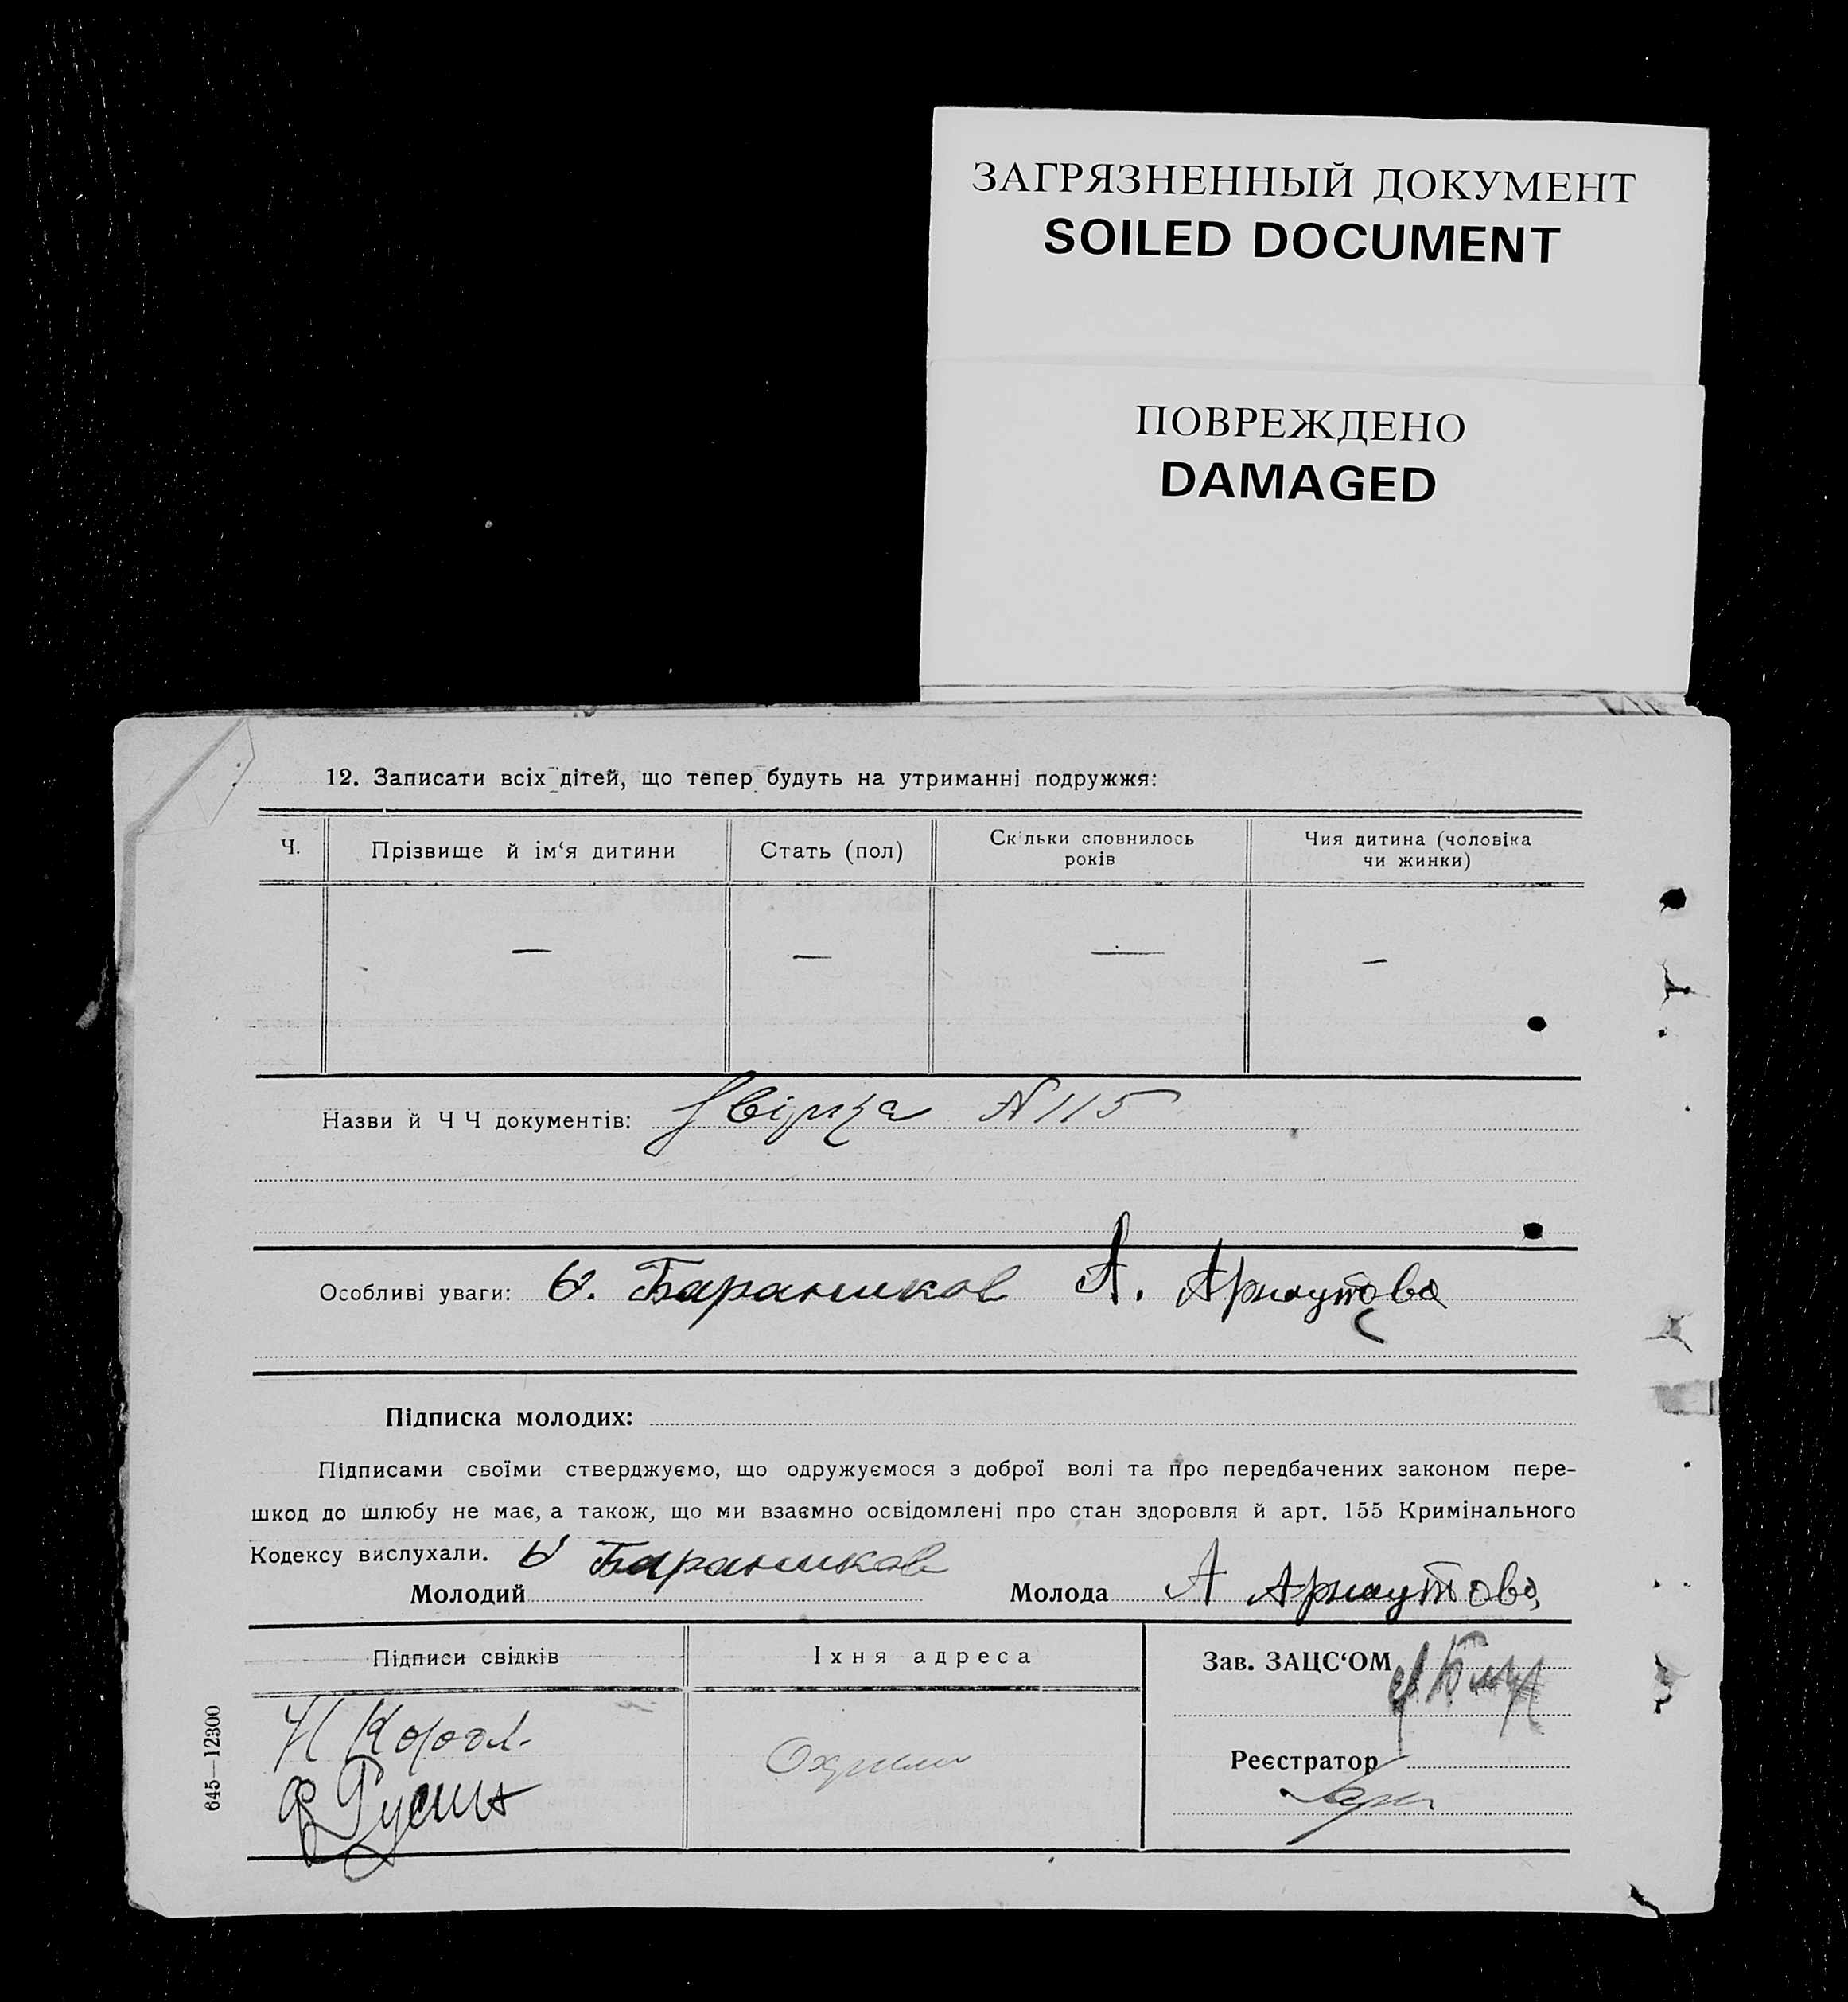 ЗАГРЯЗНЕННЫЙ ДОКУМЕНТ
SOILED DOCUMENT
ПОВРЕЖДЕНО
DAMAGED
12. Записати всіх дітей, що тепер будуть на утриманні подружжя:
Ч. Прізвище й ім‘я дитини Стать (пол) Скільки сповнилось років Чия дитина (чоловіка чи жинки)
— — — —
Назви й Ч Ч документів: N 115
Особливі уваги: Бараников А. Арнаутова
Підписка молодих:
Підписами своїми стверджуємо, що одружуємося з доброї волі та про передбачених законом пере-
шкод до шлюбу не має, а також, що ми взаємно освідомлені про стан здоровля й арт. 155 Кримінального
Кодексу вислухали.
Молодий Бараников Молода А Арнаутова
Підписи свідків Їхня адреса Зав. ЗАЦС‘ОМ
Реєстратор
645—12300